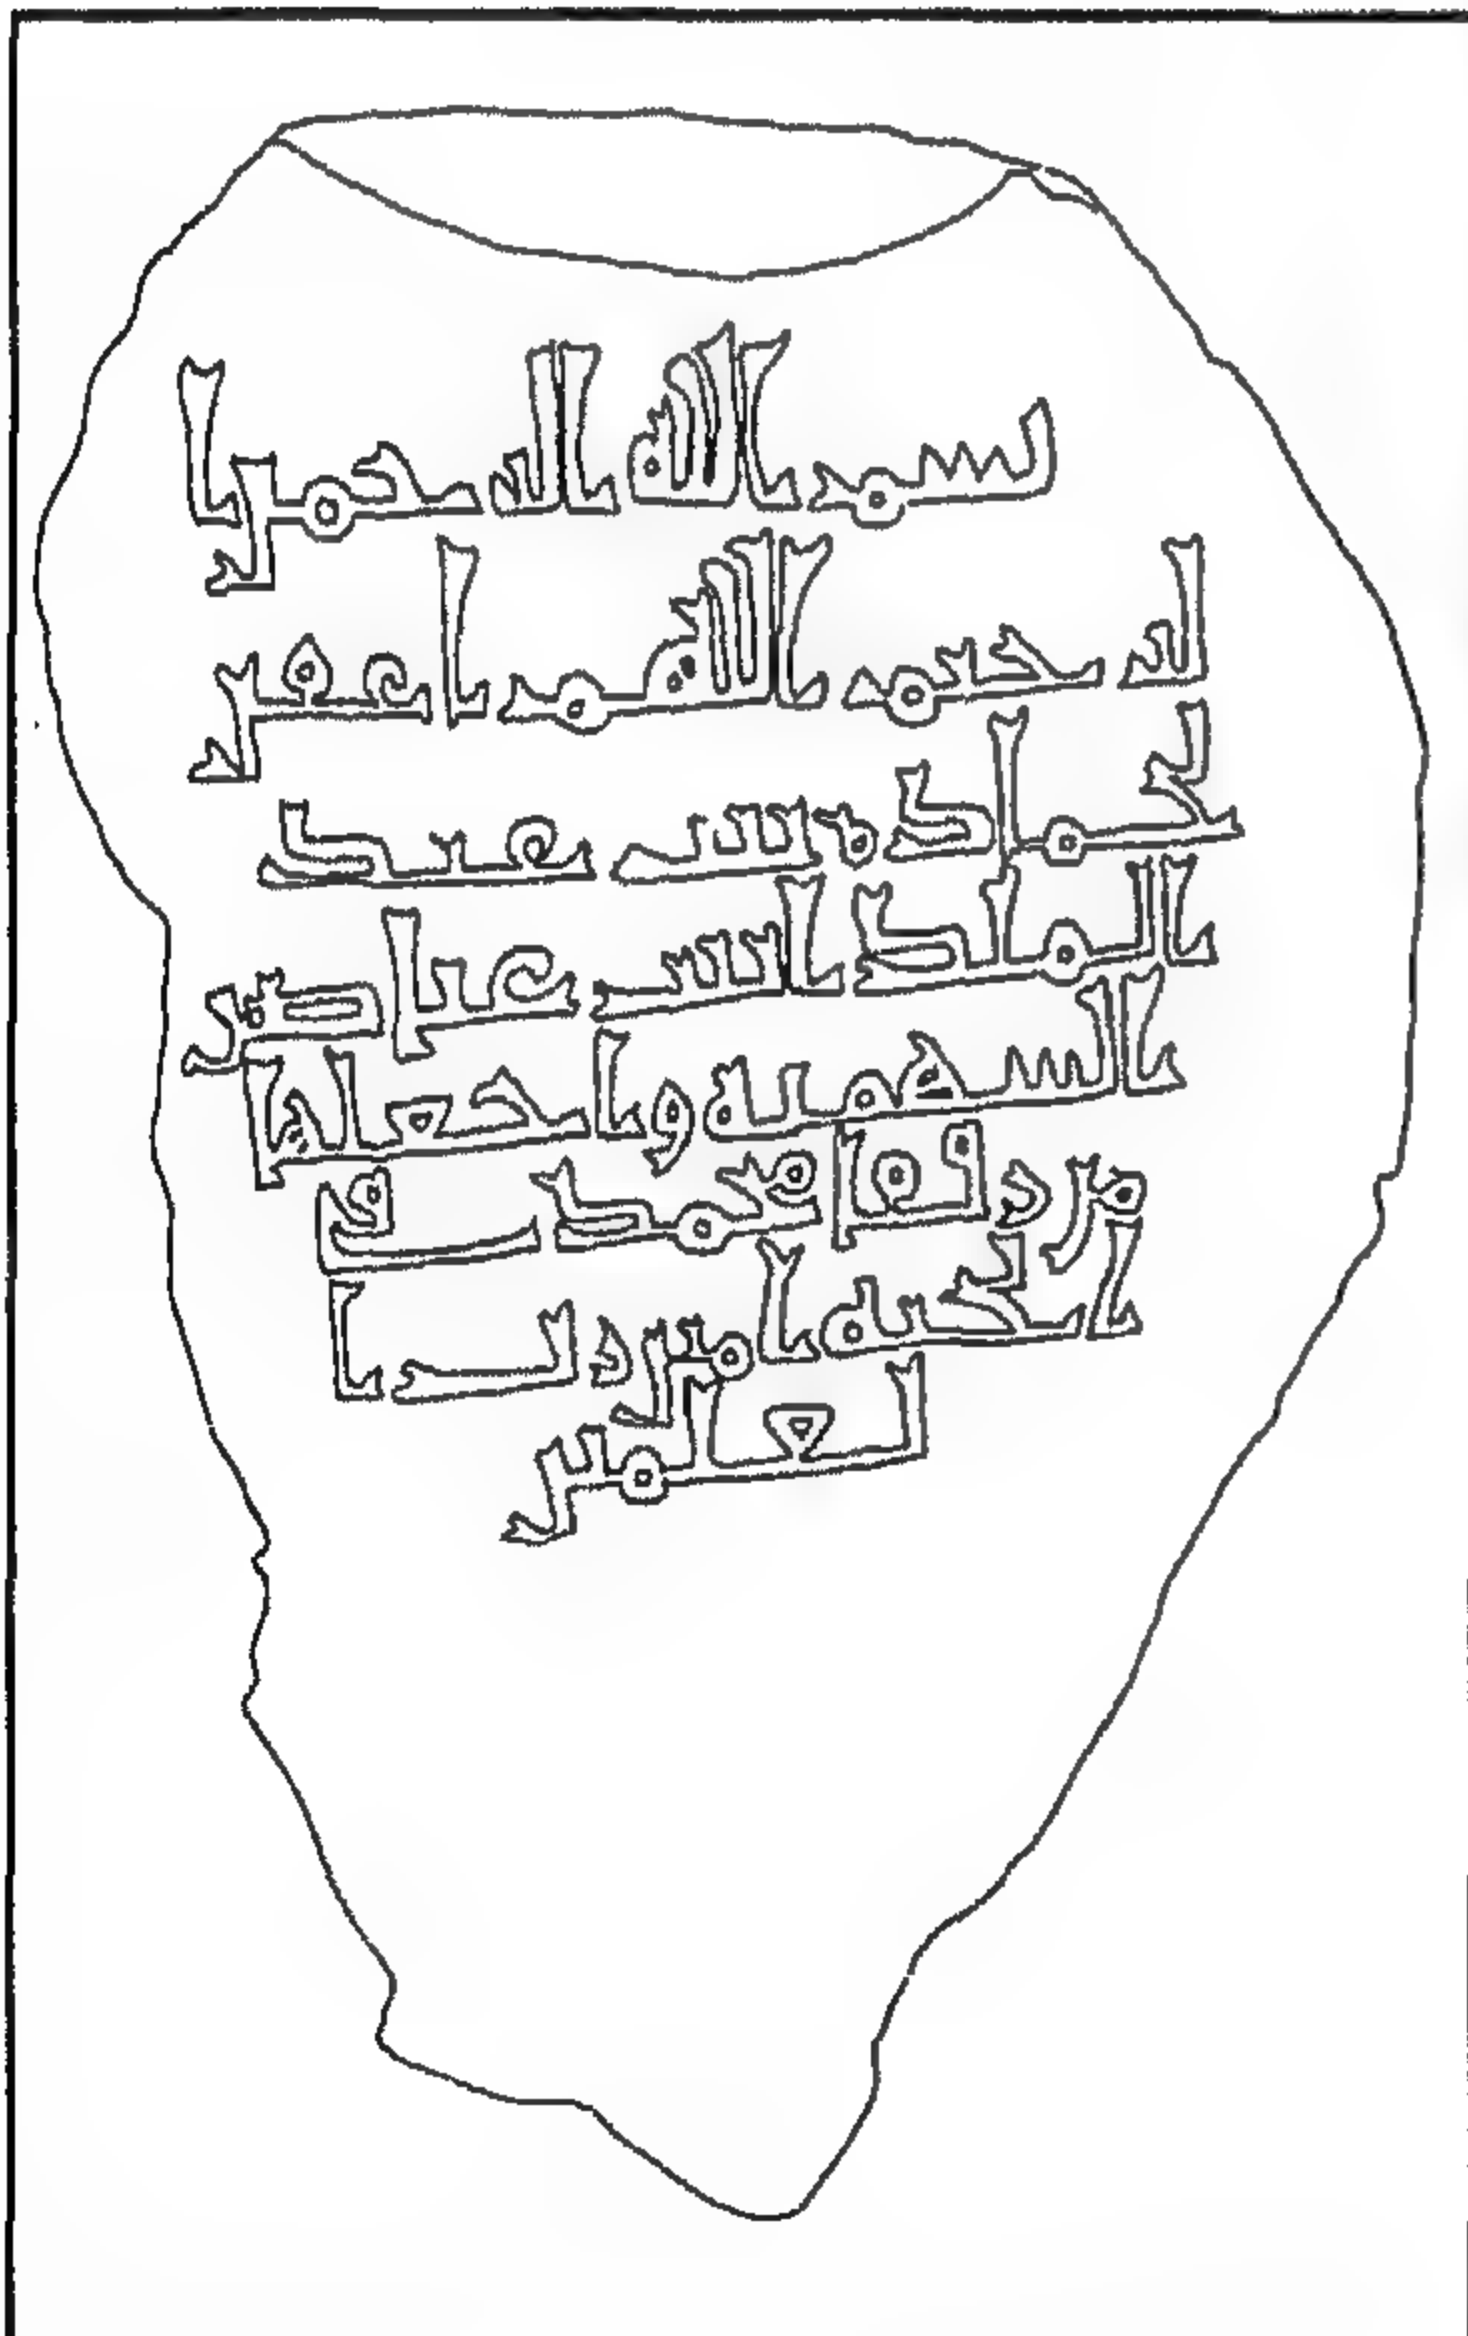 بسم الله الرحمن ا
لرحيم اللهم اغفر
لحمادة بنت عبد
الملك ابنت
السهمية واجعلها
من رفقا محمد في
الجنة امين رب ا
لعلمين